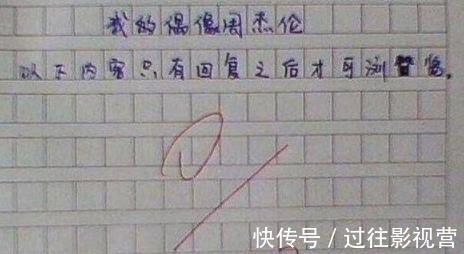 我的偶像周杰伦
以下内容只有回复之后才可浏览。
快传号/过往影视营